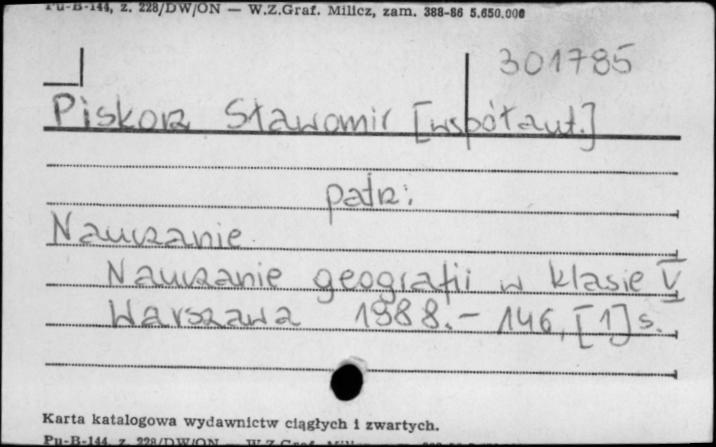 Pu-B-144, z. 228/DW/ON — W.Z.Graf. Milicz, zam. 388-86 5.650.000
301785
Piskorz Sławomir [współaut.]
patrz:
Nauczanie
Nauczanie geografii w klasie V
Warszawa 1988.- 146, [1] s.
Karta katalogowa wydawnictw ciągłych i zwartych.
Pu-B-144, z. 228/DW/ON — W.Z.Graf. Milicz, zam.